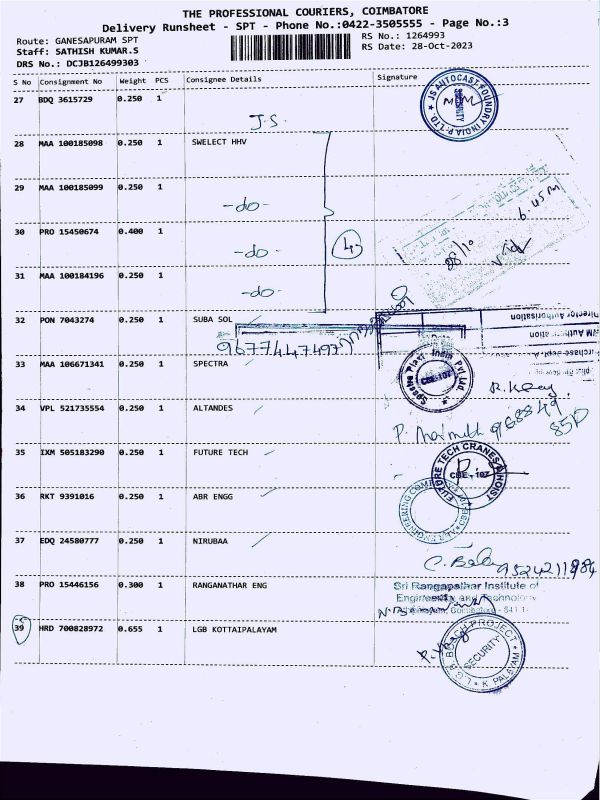 THE PROFESSIONAL COURIERS, COIMBATORE
Delivery Runsheet - SPT - Phone No.:0422-3505555 - Page No.:3
Route: GANESAPURAM SPT
Staff: SATHISH KUMAR.S
DRS No.: DCJB126499303
RS No.: 1264993
RS Date: 28-Oct-2023
S No Consignment No Weight PCS Consignee Details Signature
27 BDQ 3615729 0.250 1
J.S.
JS AUTOCAST FOUNDRY INDIA P. LTD
SECURITY
28 MAA 100185098 0.250 1 SWELECT HHV
29 MAA 100185099 0.250 1
-do-
6.45M
30 PRO 15450674 0.400 1
-do-
4
28/10
31 MAA 100184196 0.250 1
-do-
32 PON 7043274 0.250 1 SUBA SOL
Director Authorisation
9677447497
33 MAA 106671341 0.250 1 SPECTRA
Spectra Plast India Pvt Ltd.
CBE-107
34 VPL 521735554 0.250 1 ALTANDES
35 IXM 505183290 0.250 1 FUTURE TECH
FUTURE TECH CRANES & HOIST
CBE - 107
36 RKT 9391016 0.250 1 ABR ENGG
37 EDQ 24580777 0.250 1 NIRUBAA
38 PRO 15446156 0.300 1 RANGANATHAR ENG
Sri Ranganathar Institute of
Engineering and Technology
39 HRD 700828972 0.655 1 LGB KOTTAIPALAYAM
SECURITY
K. PALAYAM